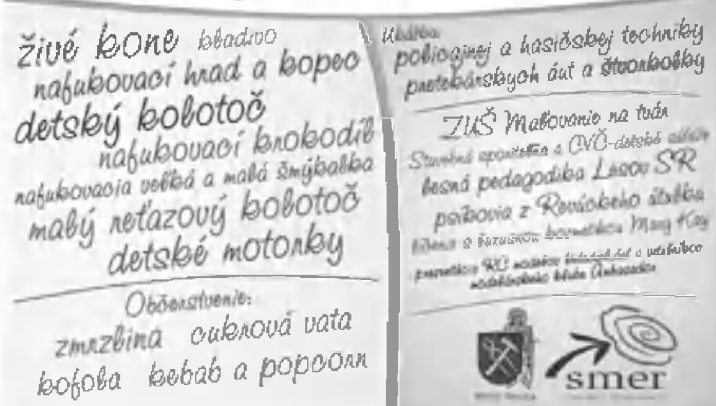 živé kone kladivo
nafukovací hrad a kopec
detský kolotoč
nafukovací krokodíl
nafukovacia veľká a malá šmýkalka
malý reťazový kolotoč
detské motorky
Občerstvenie:
zmrzlina cukrová vata
kofola kebab a popcorn
Ukážka:
policajnej a hasičskej techniky
pretekárskych áut a štvorkolky
ZUŠ Maľovanie na tvár
a CVČ-detské
lesná pedagodika Lesov SR
psíkovia z Revúckeho útulku
kozmetikou Mary Kay
RC modelov áut a
modelárskeho klubu
smer